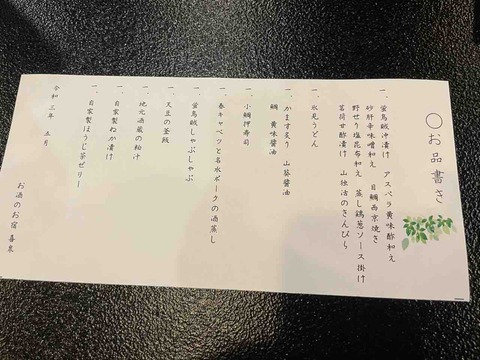 〇お品書き
一、蛍烏賊沖漬け　アスパラ黄味酢和え
砂肝辛味噌和え　目鯛西京焼き
野ぜり塩昆布和え　蒸し鶏葱ソース掛け
茗荷甘酢漬け　山独活のきんぴら
一、氷見うどん
一、かます炙り　山葵醤油
鯛　黄味醤油
一、小鯛押寿司
一、春キャベツと名水ポークの酒蒸し
一、蛍烏賊しゃぶしゃぶ
一、天豆の釜飯
一、地元酒蔵の粕汁
一、自家製ぬか漬け
一、自家製ほうじ茶ゼリー
令和三年　五月
お酒のお宿　喜泉